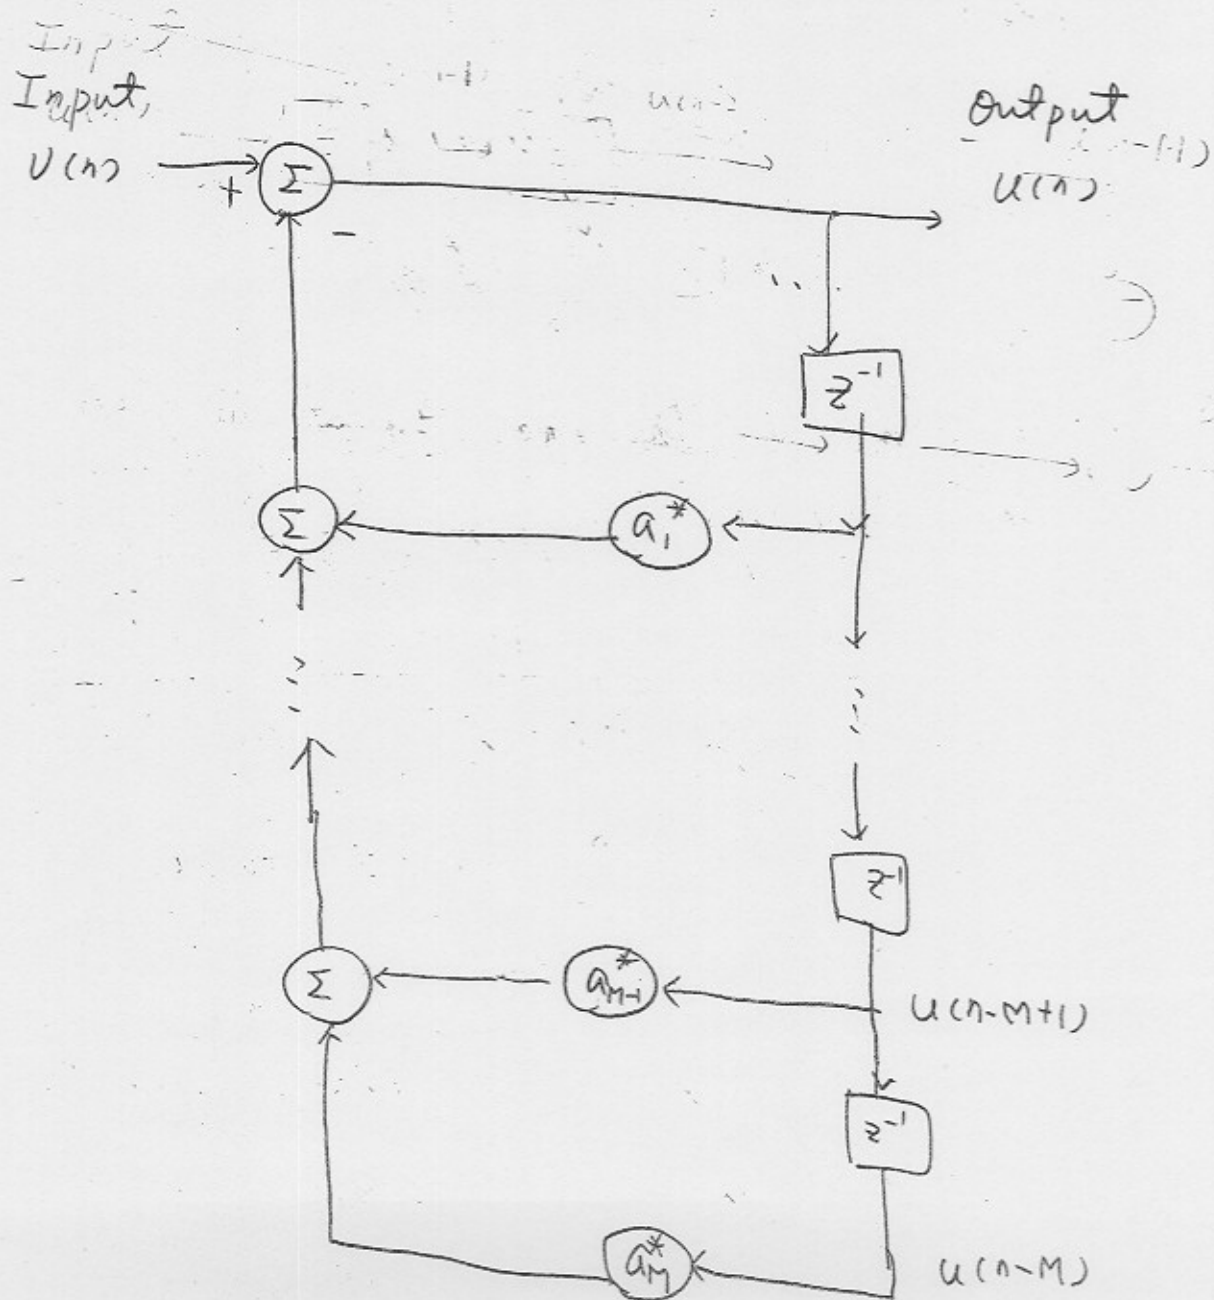 Input
Input,
Output
υ(n)
+
Σ
u(n)
-
z⁻¹
Σ
a₁*
z⁻¹
Σ
a*M-1
u(n-M+1)
z⁻¹
a*M
u(n-M)